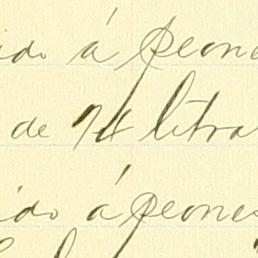 ido á peone
de 74 litra
ido á peones